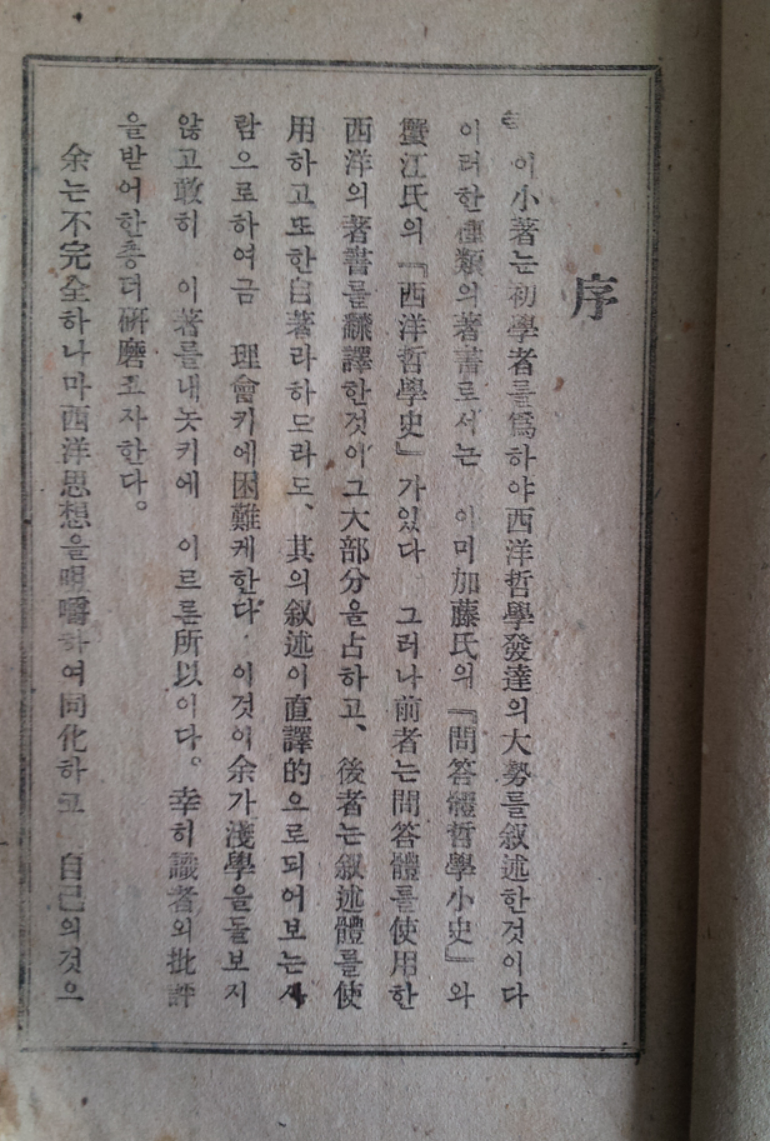 序
이小著는初學者를爲하야西洋哲學發達의大勢를叙述한것이다
이러한種類의著書로서는 이미加藤氏의『問答體哲學小史』와
蟹江氏의『西洋哲學史』가있다 그러나前者는問答體를使用한
西洋의著書를飜譯한것이그大部分을占하고、後者는叙述體를使
用하고또한自著라하드라도、其의叙述이直譯的으로되어보는사
람으로하여금 理會키에困難케한다 이것이余가淺學을돌보지
않고敢히 이著를내놋키에 이르른所以이다。幸히識者의批評
을받어한층더硏磨코자한다。
余는不完全하나마西洋思想을咀嚼하여同化하고 自己의것으